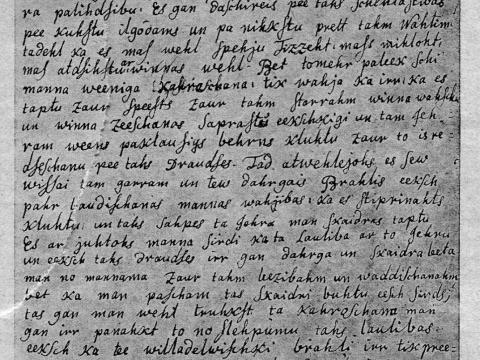 ra palihdsibu. Es gan daschireis pee tahs Schehlastibas
pee kukstu ilgodams un pa nikkstu prett tahm Wahtim
tadehl ka es mas wehl spehju Tizzeht, mass mihloht,
mas atdsihstu ar winnas wehl. Bet tomehr paleek Schi
manna weeniga Kahroschana; tik wahja ka irr, ka es
taptu zaur speests zaur tahm starrahm winna wahschu
un winna Zeeschanas Saprastu eekschkigi un tam Jeh-
ram weens paklausigs behrns kluhtu zaur to isre-
dseschanu pee tahs Draudses. Tad atwehlejohs es sew
wissai tam garram un lew dahrgais Brahlis eeksch
pahr laudischanas mannas wahjibas; ka es stiprinahts
kluhtu, un tahs sahpes ta Jehra man skaidras taptu
Es ar juhtohs manna sirdi ka ta Lauliba ar to Jehru
un eeksch tahs draudses irr gan dahrga un skaidra leeta
man no mannama zaur tahm leezibahm un waddischanahm
bet ka man pascham tas skaidri buhtu eesch Sirds,
tas gan man wehl truhkst ta kahroschana man
gan irr panahkt to no slehpumu tahs laulibas.
eeksch ka tee willadelwischki brahli irr tikpree-